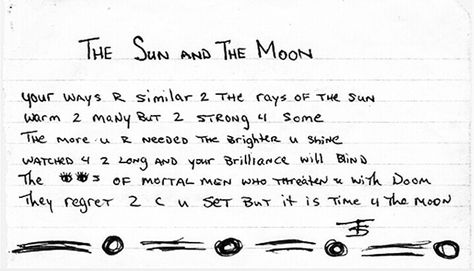 The Sun and The Moon
Your ways R similar 2 the rays of the sun
Warm 2 many but 2 strong 4 some
The more u R needed the brighter u shine
Watched 4 2 long and your brilliance will blind
The 👀s of mortal men who threaten u with Doom
They regret 2 C u set but it is time 4 the moon